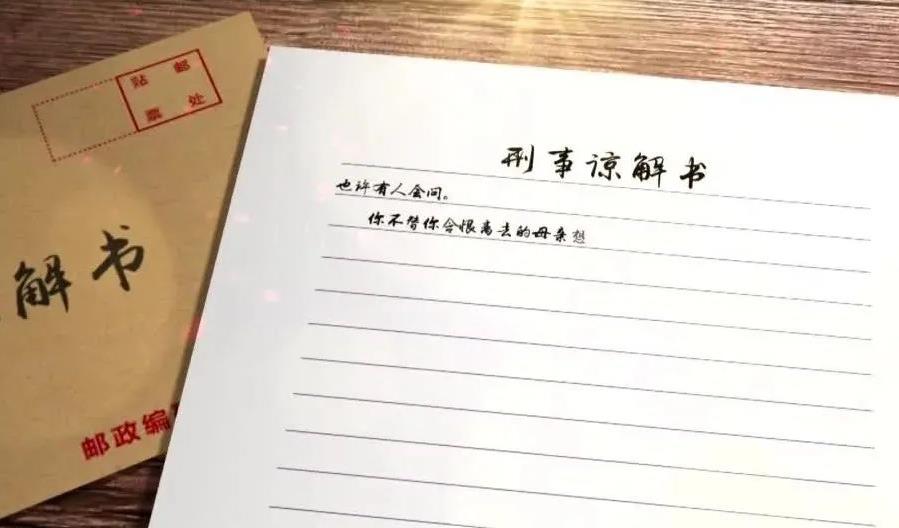 贴邮
票处
解书
邮政编
刑事谅解书
也许有人会问。
你不替你含恨离去的母亲想